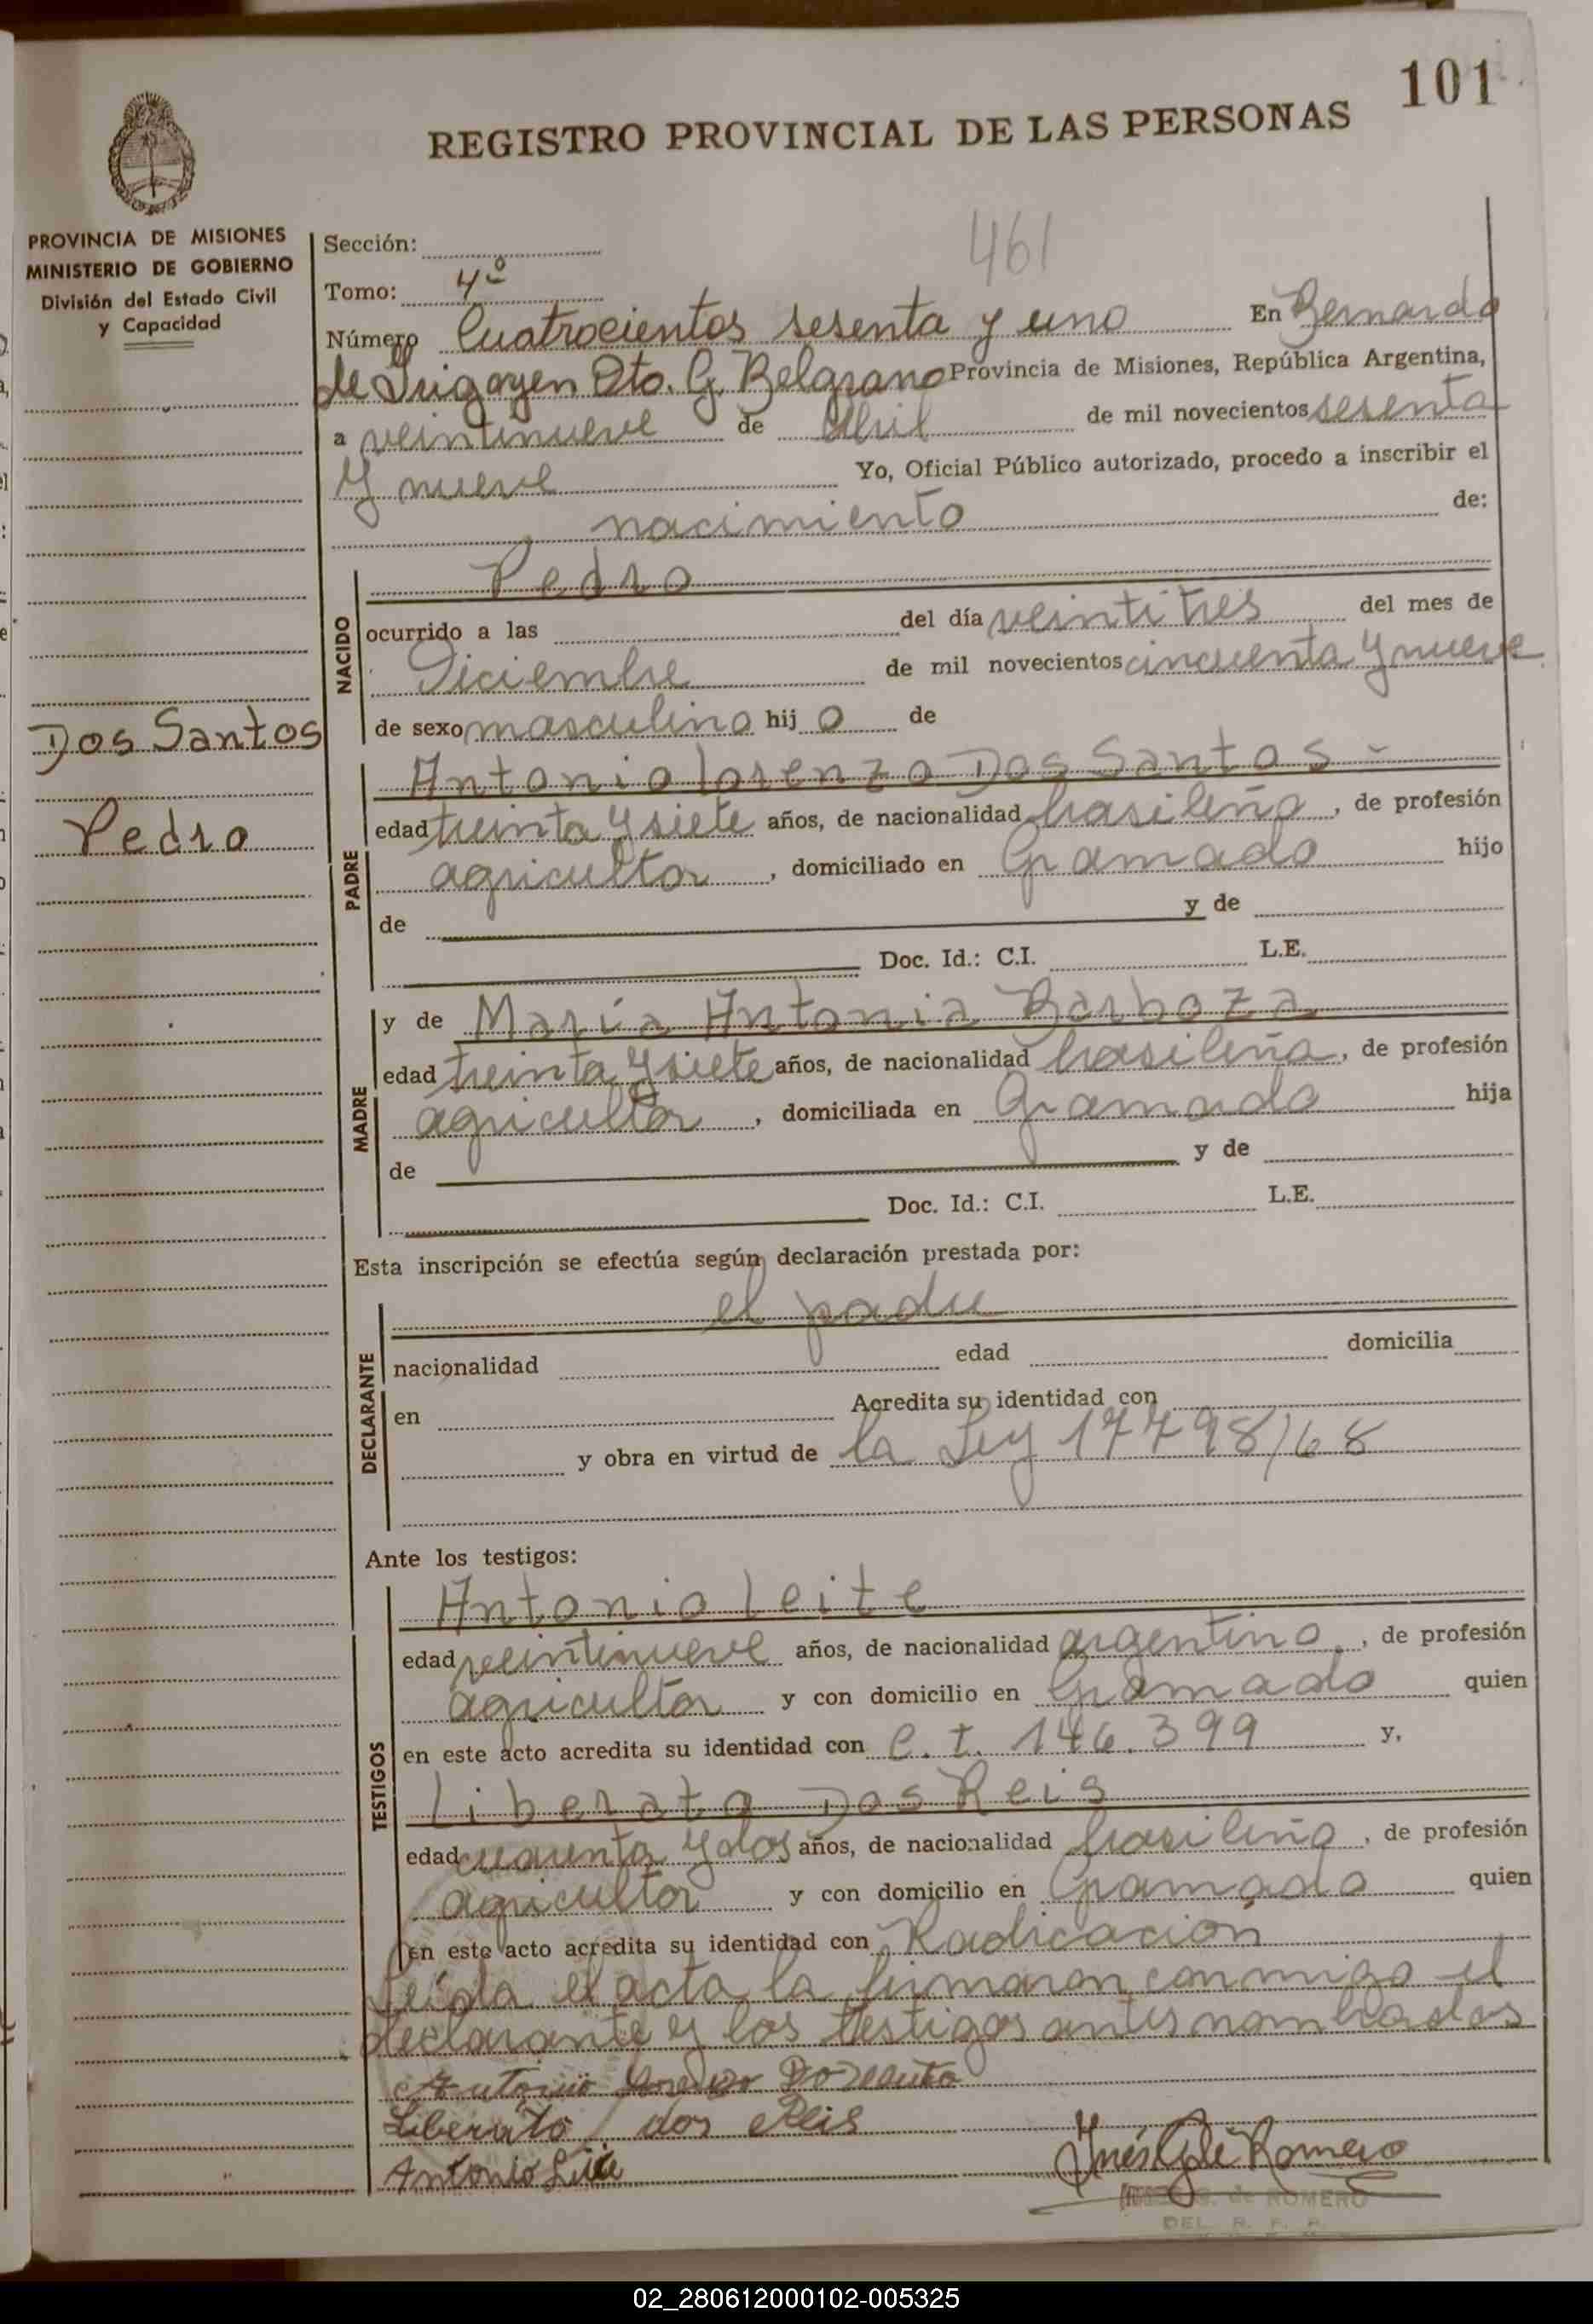 101
REGISTRO PROVINCIAL DE LAS PERSONAS
PROVINCIA DE MISIONES
MINISTERIO DE GOBIERNO
División del Estado Civil
y Capacidad
Dos Santos
Pedro
461
Sección:
Tomo: 4º
Número Cuatrocientos sesenta y uno En Bernardo
de Irigoyen Dto. G. Belgrano Provincia de Misiones, República Argentina,
a veintinueve de Abril de mil novecientos sesenta
y nueve Yo, Oficial Público autorizado, procedo a inscribir el
nacimiento de:
NACIDO
Pedro
ocurrido a las del día veintitres del mes de
Diciembre de mil novecientos cincuenta y nueve
de sexo masculino hij o de
PADRE
Antonio Lorenzo Dos Santos -
edad treinta y siete años, de nacionalidad brasileña, de profesión
agricultor, domiciliado en Gramado hijo
de y de
Doc. Id.: C.I. L.E.
MADRE
y de María Antonia Barboza
edad treinta y siete años, de nacionalidad brasileña, de profesión
agricultor, domiciliada en Gramado hija
de y de
Doc. Id.: C.I. L.E.
Esta inscripción se efectúa según declaración prestada por:
DECLARANTE
el padre
nacionalidad edad domicilia
en Acredita su identidad con
y obra en virtud de la Ley 17798/68
Ante los testigos:
TESTIGOS
Antonio Leite
edad veintinueve años, de nacionalidad argentino, de profesión
agricultor y con domicilio en Gramado quien
en este acto acredita su identidad con C.I. 146.399 y,
Liberato Dos Reis
edad cuarenta y dos años, de nacionalidad brasileño, de profesión
agricultor y con domicilio en Gramado quien
en este acto acredita su identidad con Radicación
Leída el acta la firmaron conmigo el
declarante y los testigos antes nombrados
Antonio Lorenzo
Liberato dos Reis
Antonio Leite
Inés G. de Romero
G. de ROMERO
DEL R. P. P.
02_280612000102-005325